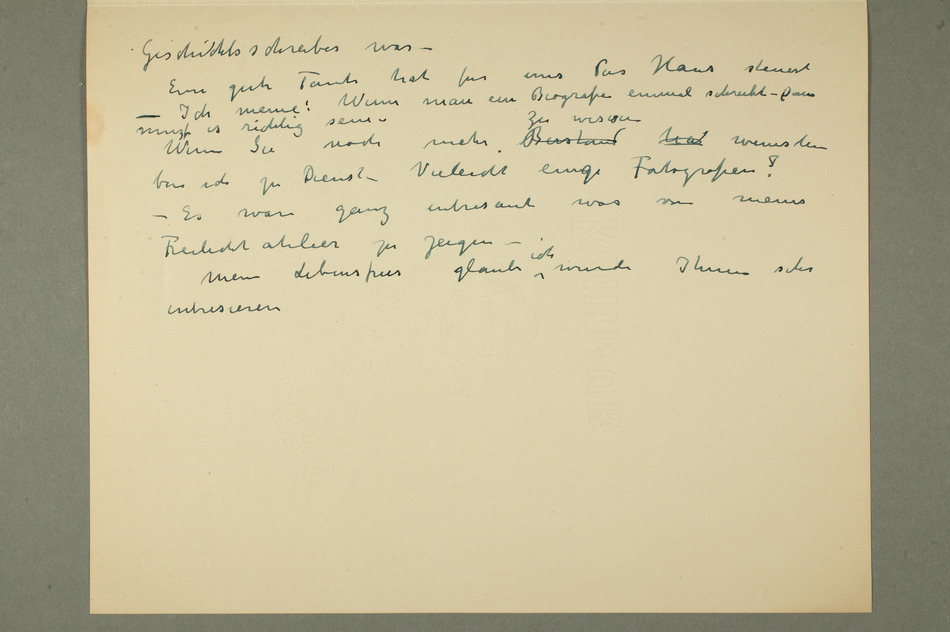 Geschichtsschreiber war –
Eine gute Tante hat für uns das Haus steuert
– Ich meine! Wenn man ein Biografie einmal schreibt – dan
muzt is richtig sein –
Wenn Sie noch mehr zu wissen ~~Berstand~~ ~~hat~~ wünschen
bin ich zu Dienst – Vieleicht einige Fotografien?
– Es wäre ganz intresant was von meins
Freilicht atelier zu zeigen –
mein Lebensfries glaube ich würde Ihnen sehr
intresieren